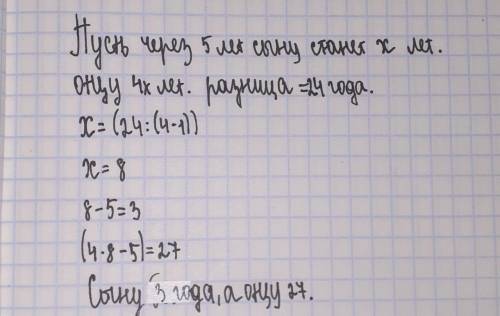 Пусть через 5 лет сыну станет x лет.
отцу 4x лет. разница =24 года.
x=(24:(4-1))
x=8
8-5=3
(4·8-5)=27
Сыну 3 года, а отцу 27.